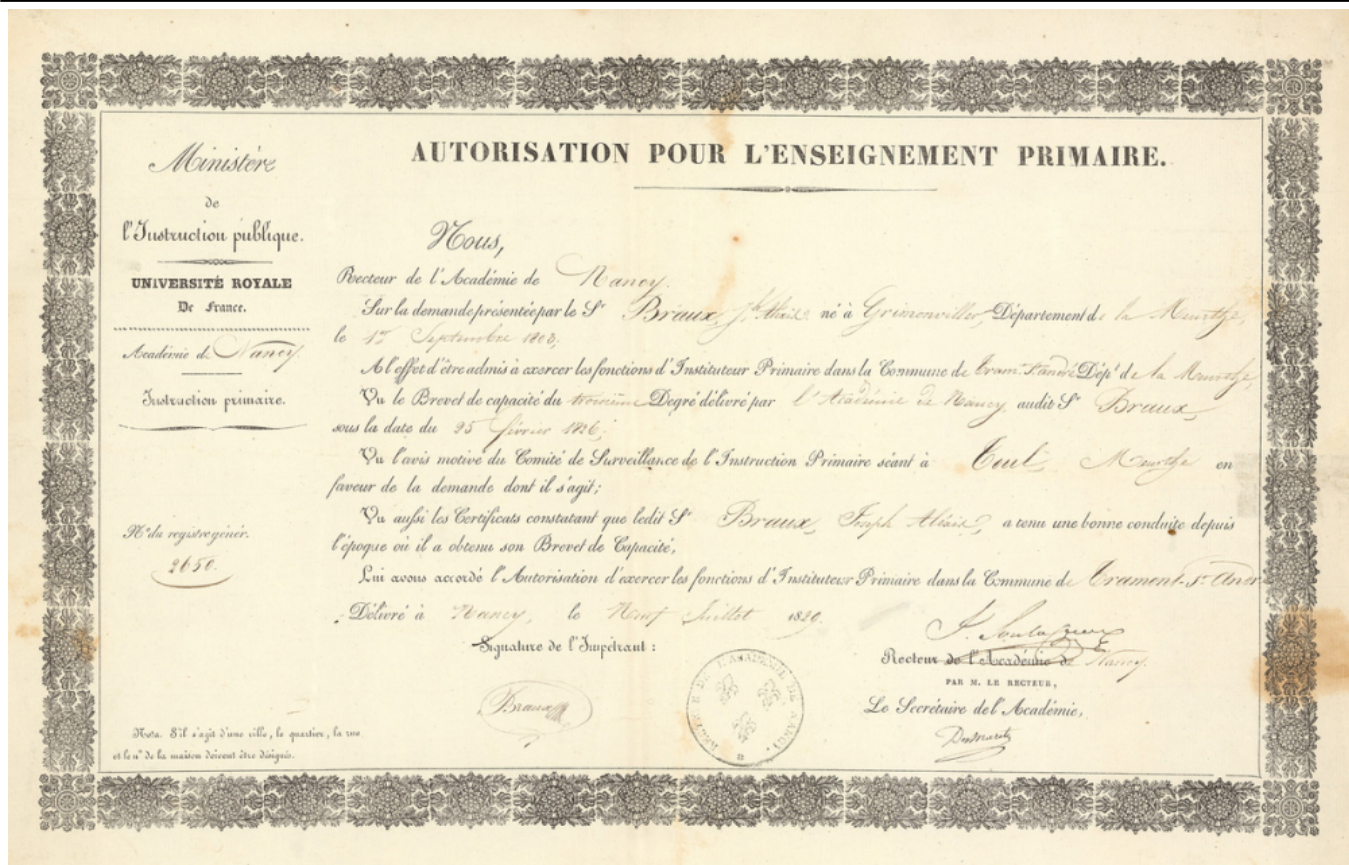 Ministère
de
l'Instruction publique.
UNIVERSITÉ ROYALE
De France.
Académie de Nancy.
Instruction primaire.
N.º du registre génér.
2650.
Nota. S'il s'agit d'une ville, le quartier, la rue
et le n.º de la maison doivent être désignés.
AUTORISATION POUR L'ENSEIGNEMENT PRIMAIRE.
Nous,
Recteur de l'Académie de Nancy.
Sur la demande présentée par le S.r Braux, J.ph né à Grimonviller, Département de la Meurthe,
le 1.er Septembre 1803,
A l'effet d'être admis à exercer les fonctions d'Instituteur Primaire dans la Commune de Tram. S.t andré Dép.t de la Meurthe,
Vu le Brevet de capacité du troisième Degré délivré par l'Académie de Nancy audit S.r Braux,
sous la date du 25 février 1826;
Vu l'avis motivé du Comité de Surveillance de l'Instruction Primaire séant à Toul, Meurthe en
faveur de la demande dont il s'agit;
Vu aussi les Certificats constatant que ledit S.r Braux, Joseph , a tenu une bonne conduite depuis
l'époque où il a obtenu son Brevet de Capacité,
Lui avons accordé l'Autorisation d'exercer les fonctions d'Instituteur Primaire dans la Commune de Tramont-S.t Andr
Délivré à Nancy, le Neuf Juillet 1829.
Signature de l'Impétrant :
Braux
DE L'ACADÉMIE DE NANCY.
Recteur de l'Académie de Nancy.
PAR M. LE RECTEUR,
Le Secrétaire de l'Académie,